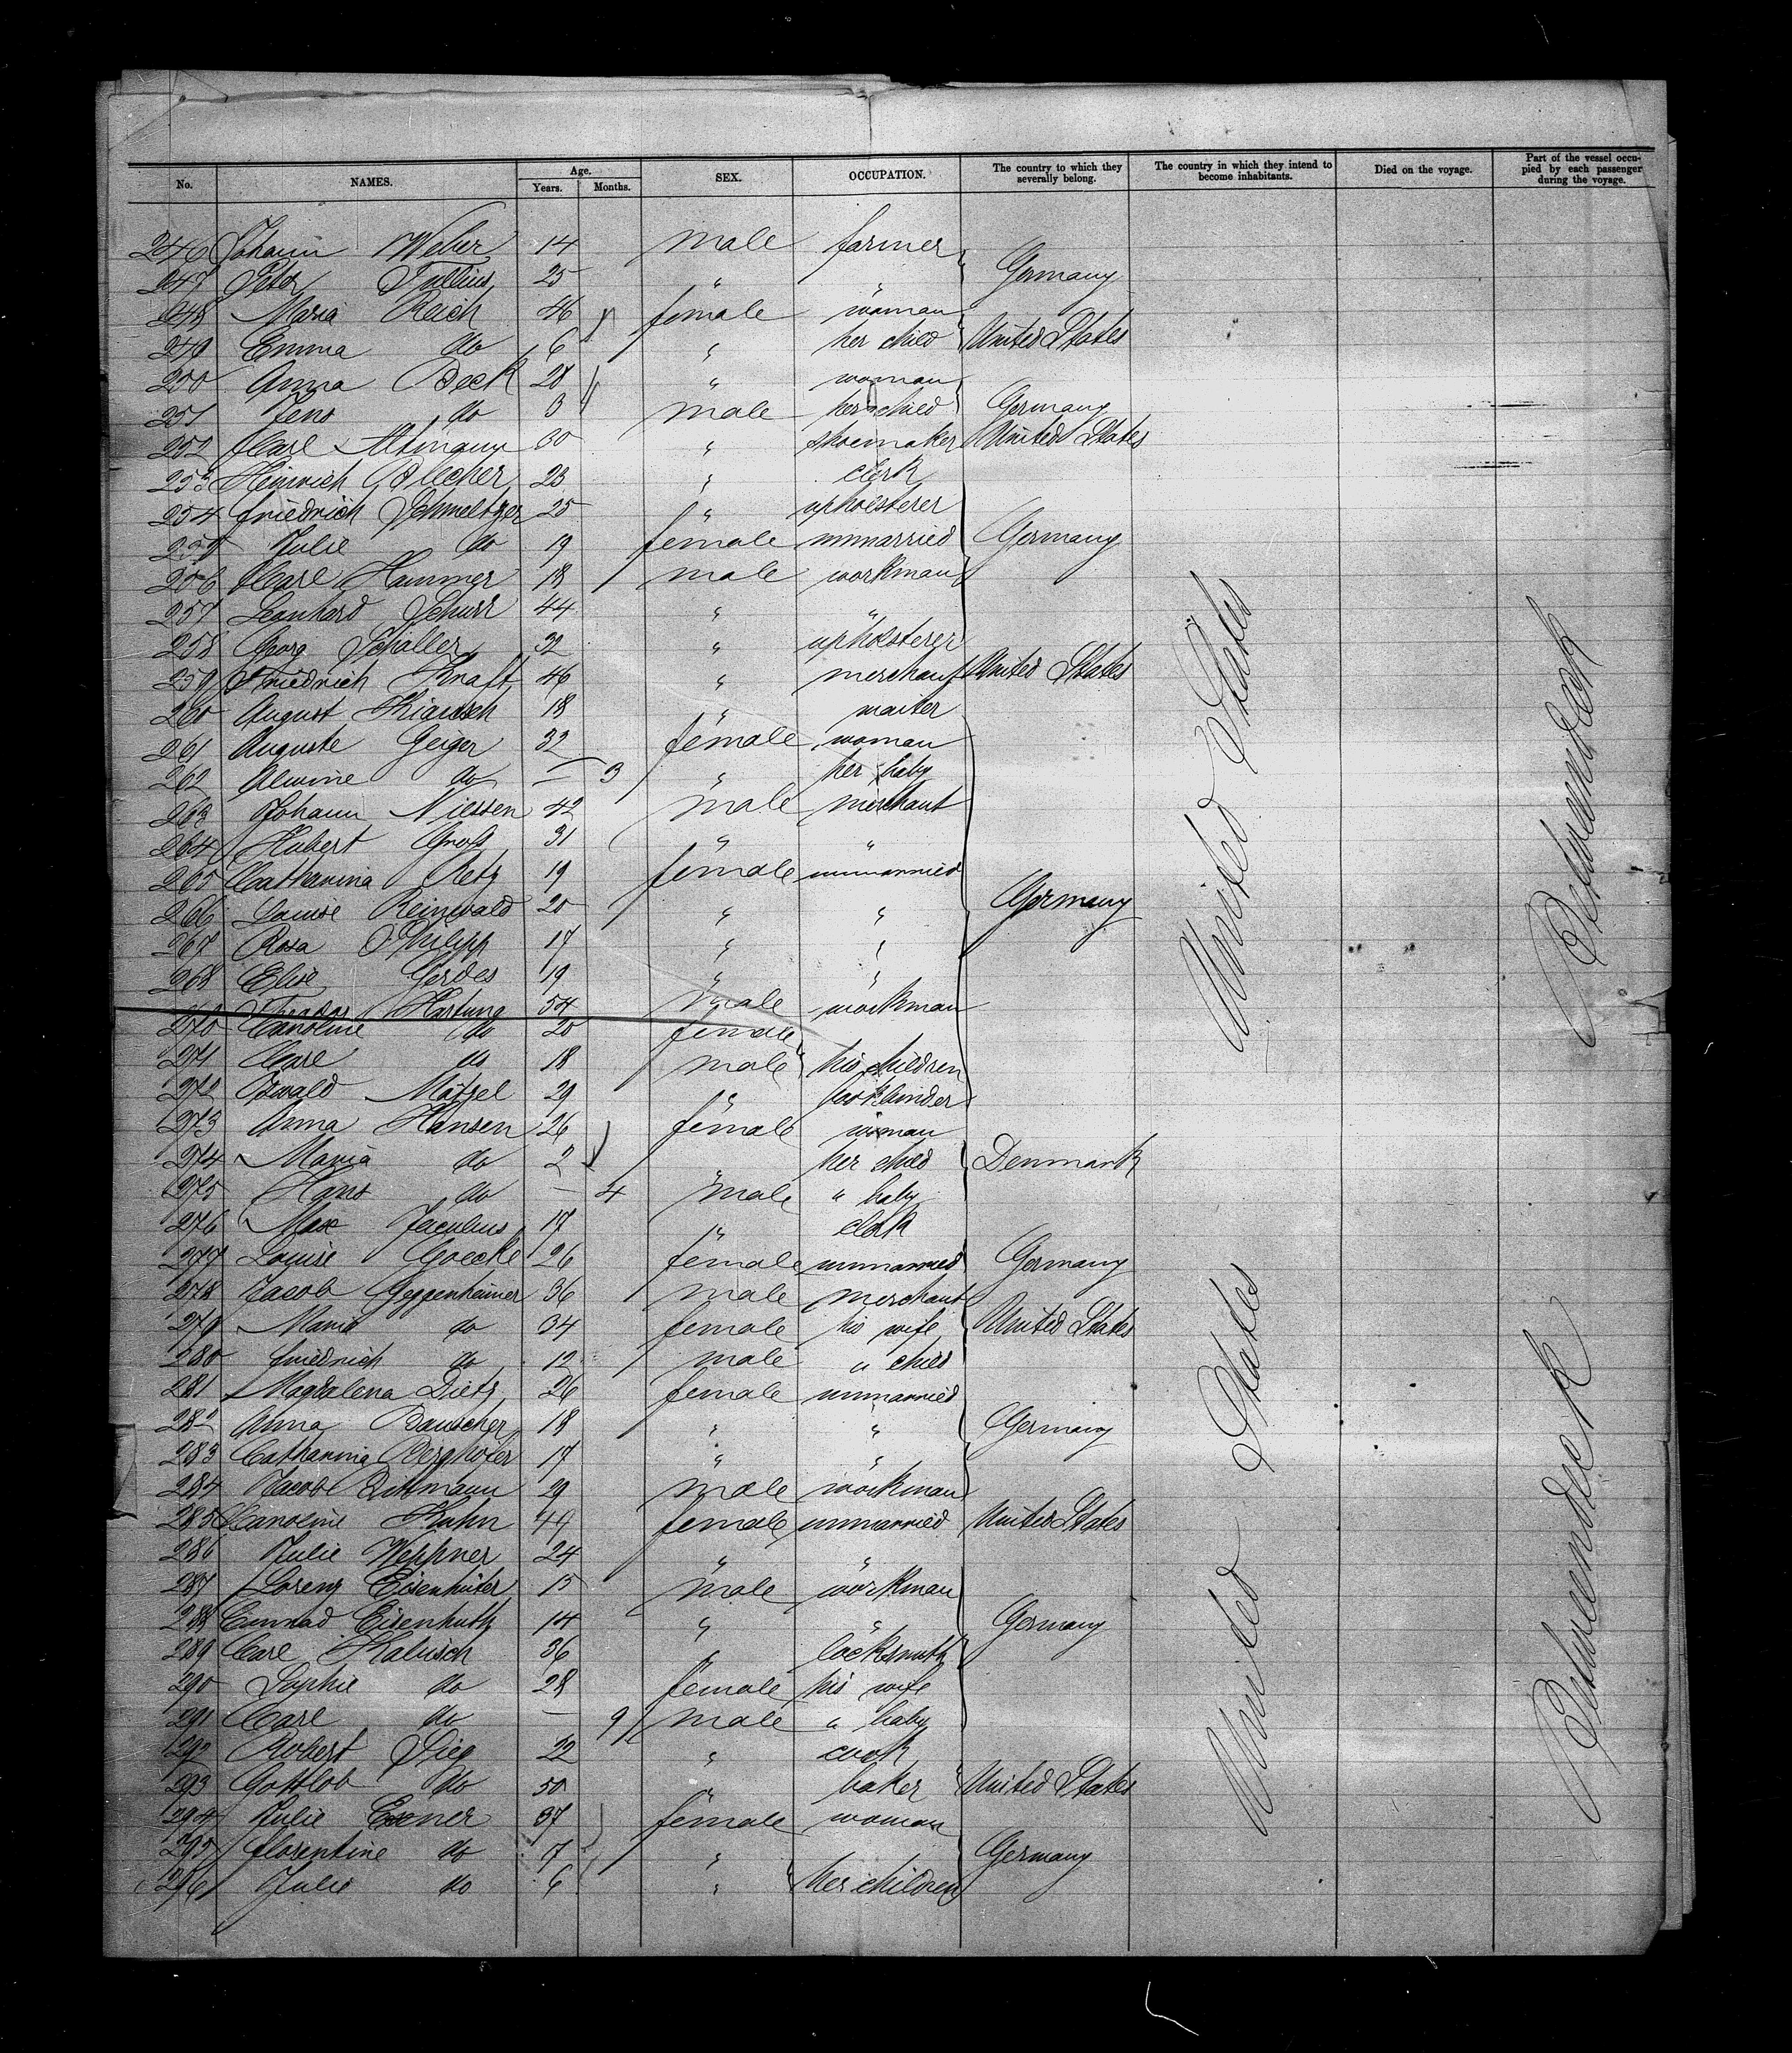 No. NAMES. Age. Years. Months. SEX. OCCUPATION. The country to which they severally belong. The country in which they intend to become inhabitants. Died on the voyage. Part of the vessel occupied by each passenger during the voyage.
246 Johann Weber 14 male farmer
247 Peter Tullius 25 " " Germany
248 Maria Reich 46 female woman
249 Emma do 6 " her child United States
250 Anna Beck 28 " woman
251 Jens do 3 male her child Germany
252 Carl Altmann 30 " shoemaker United States
253 Heinrich Blecher 23 " clerk
254 Friedrich Schmeltzer 25 " upholsterer
255 Julie do 19 female unmarried Germany
256 Carl Hammer 18 male workman
257 Leonhard Schurr 44 " "
258 Georg Schaller 32 " upholsterer
259 Friedrich Kraft 46 " merchant United States
260 August 18 " waiter
261 Auguste Geiger 32 female woman
262 Alwine do — 3 " her baby
263 Johann Niessen 42 male merchant
264 Hubert Groß 31 " "
265 Catharina Retz 19 female unmarried
266 Louise Reinwald 20 " " Germany
267 Rosa Philipp 17 " "
268 Elise Gerdes 19 " "
269 Theodor Hartung 54 male workman
270 Caroline do 20 female
271 Carl do 18 male his children
272 Oswald Mätzel 29 " bookbinder
273 Anna Hansen 26 female woman
274 Maria do 2 her child Denmark
275 Hans do — 4 male " baby
276 Max 17 " clerk
277 Louise Goecke 26 female unmarried Germany
278 Jacob Geggenheimer 36 male merchant
279 Maria do 34 female his wife United States
280 Friedrich do 12 male " child
281 Magdalena Dietz 26 female unmarried
282 Anna Bauscher 18 " " Germany
283 Catharina Berghofer 17 " "
284 Jacob Dittmann 29 male workman
285 Caroline Kuhn 49 female unmarried United States
286 Julie Weppner 24 " "
287 Lorenz Eisenhüter 15 male workman
288 Conrad Eisenhuth 14 " " Germany
289 Carl Kalusch 36 " locksmith
290 Sophie do 28 female his wife
291 Carl do — 9 male " baby
292 Robert Sieg 22 " cook
293 Gottlob do 50 " baker United States
294 Julie Exner 37 female woman
295 Florentine do 7 " Germany
296 Julie do 6 " her children
United States
Betweendeck
United States
Betweendeck